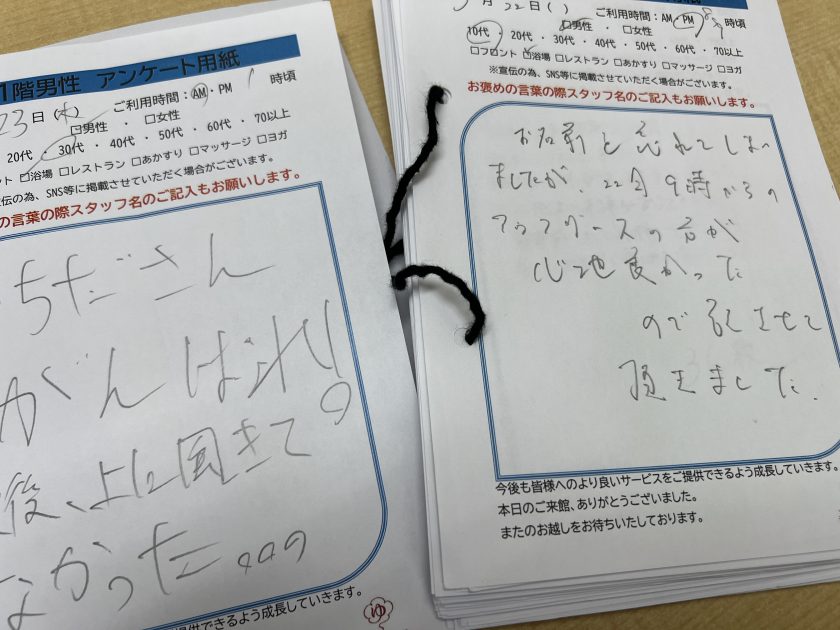 1階男性 アンケート用紙
23日(木) ご利用時間:AM・PM 1 時頃
□男性 ・ □女性
20代・30代・40代・50代・60代・70以上
ント □浴場 □レストラン □あかすり □マッサージ □ヨガ
宣伝の為、SNS等に掲載させていただく場合がございます。
の言葉の際スタッフ名のご記入もお願いします。
ちださん
がんばれ!
後、上に風きて
なかった…。
提供できるよう成長していきます。
ゆ
月 22日( ) ご利用時間:AM・PM 時頃
□男性 ・ □女性
10代・20代・30代・40代・50代・60代・70以上
□フロント □浴場 □レストラン □あかすり □マッサージ □ヨガ
※宣伝の為、SNS等に掲載させていただく場合がございます。
お褒めの言葉の際スタッフ名のご記入もお願いします。
お名前を忘れてしまっ
ましたが、22日9時からの
アウフグースの方が
心地良かった
ので記させて
頂きました。
今後も皆様へのより良いサービスをご提供できるよう成長していきます。
本日のご来館、ありがとうございました。
またのお越しをお待ちいたしております。